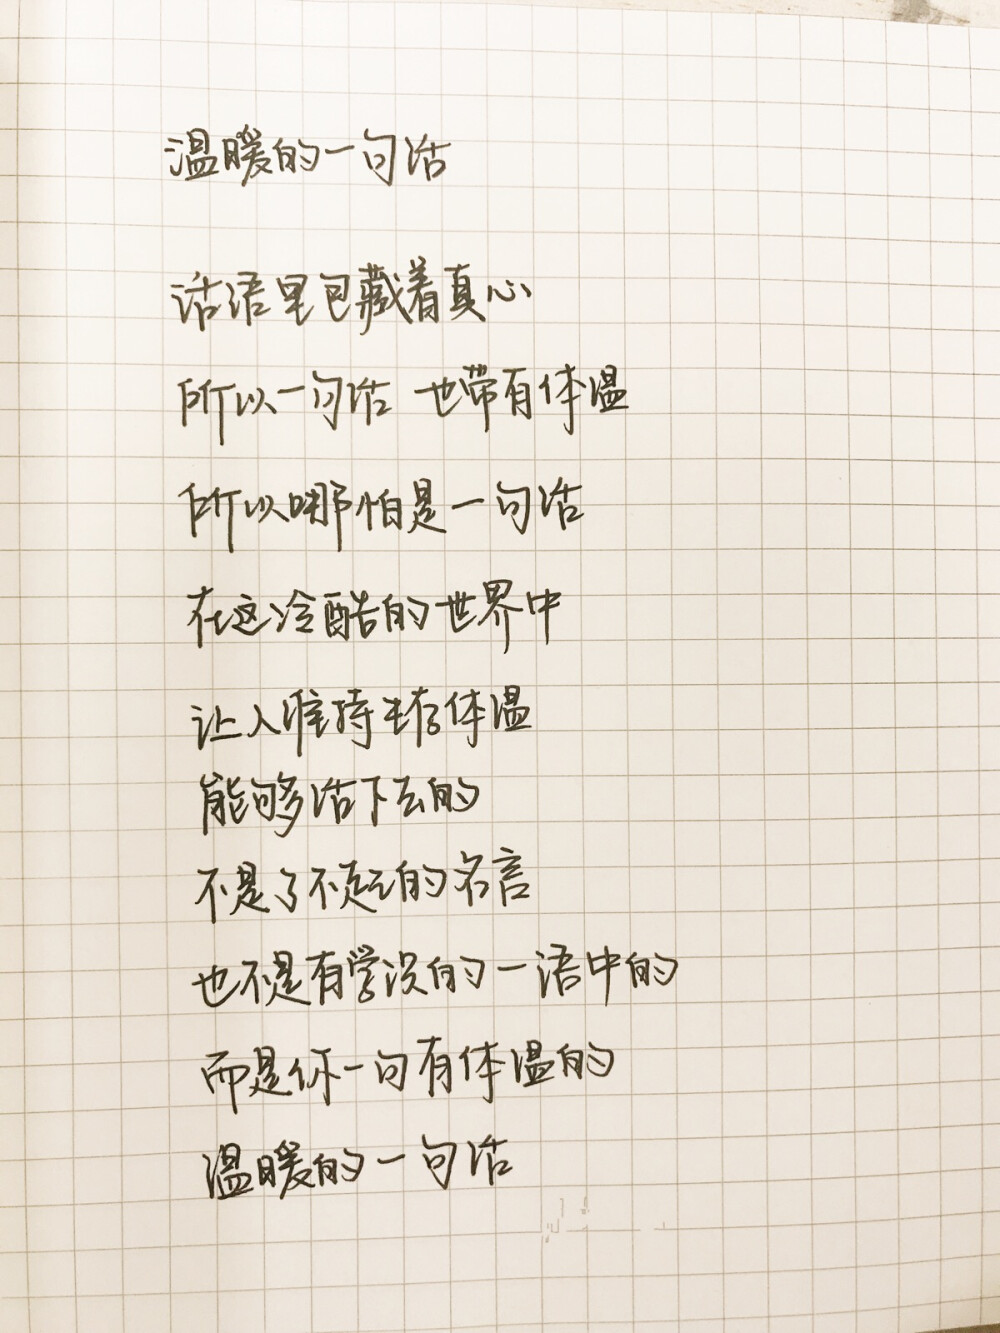 温暖的一句话
话语里包藏着真心
所以一句话 也带有体温
所以哪怕是一句话
在这冷酷的世界中
让人维持生存体温
能够活下去的
不是了不起的名言
也不是有学没的一语中的
而是你一句有体温的
温暖的一句话